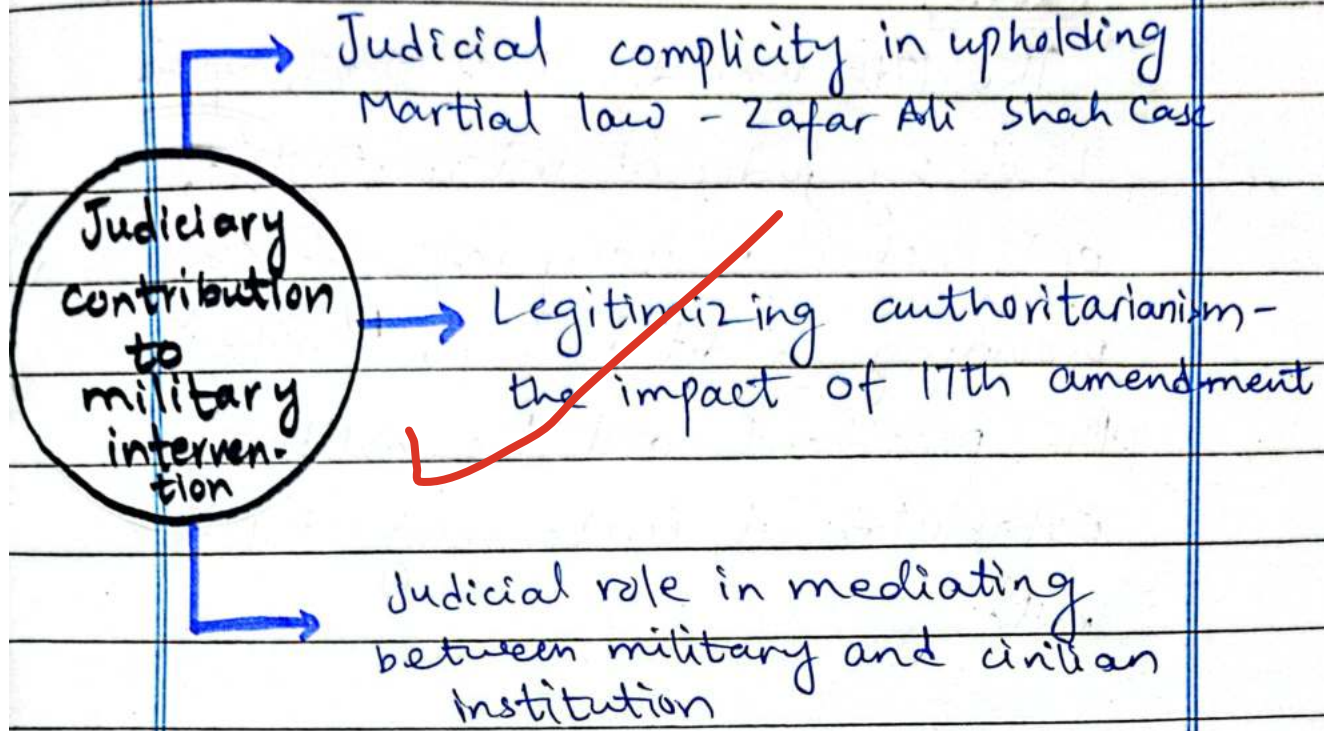 Judicial complicity in upholding
Martial law - Zafar Ali Shah Case
Judiciary
contribution
to
military
interven-
tion
Legitimizing authoritarianism-
the impact of 17th amendment
Judicial role in mediating
between military and civilian
institution